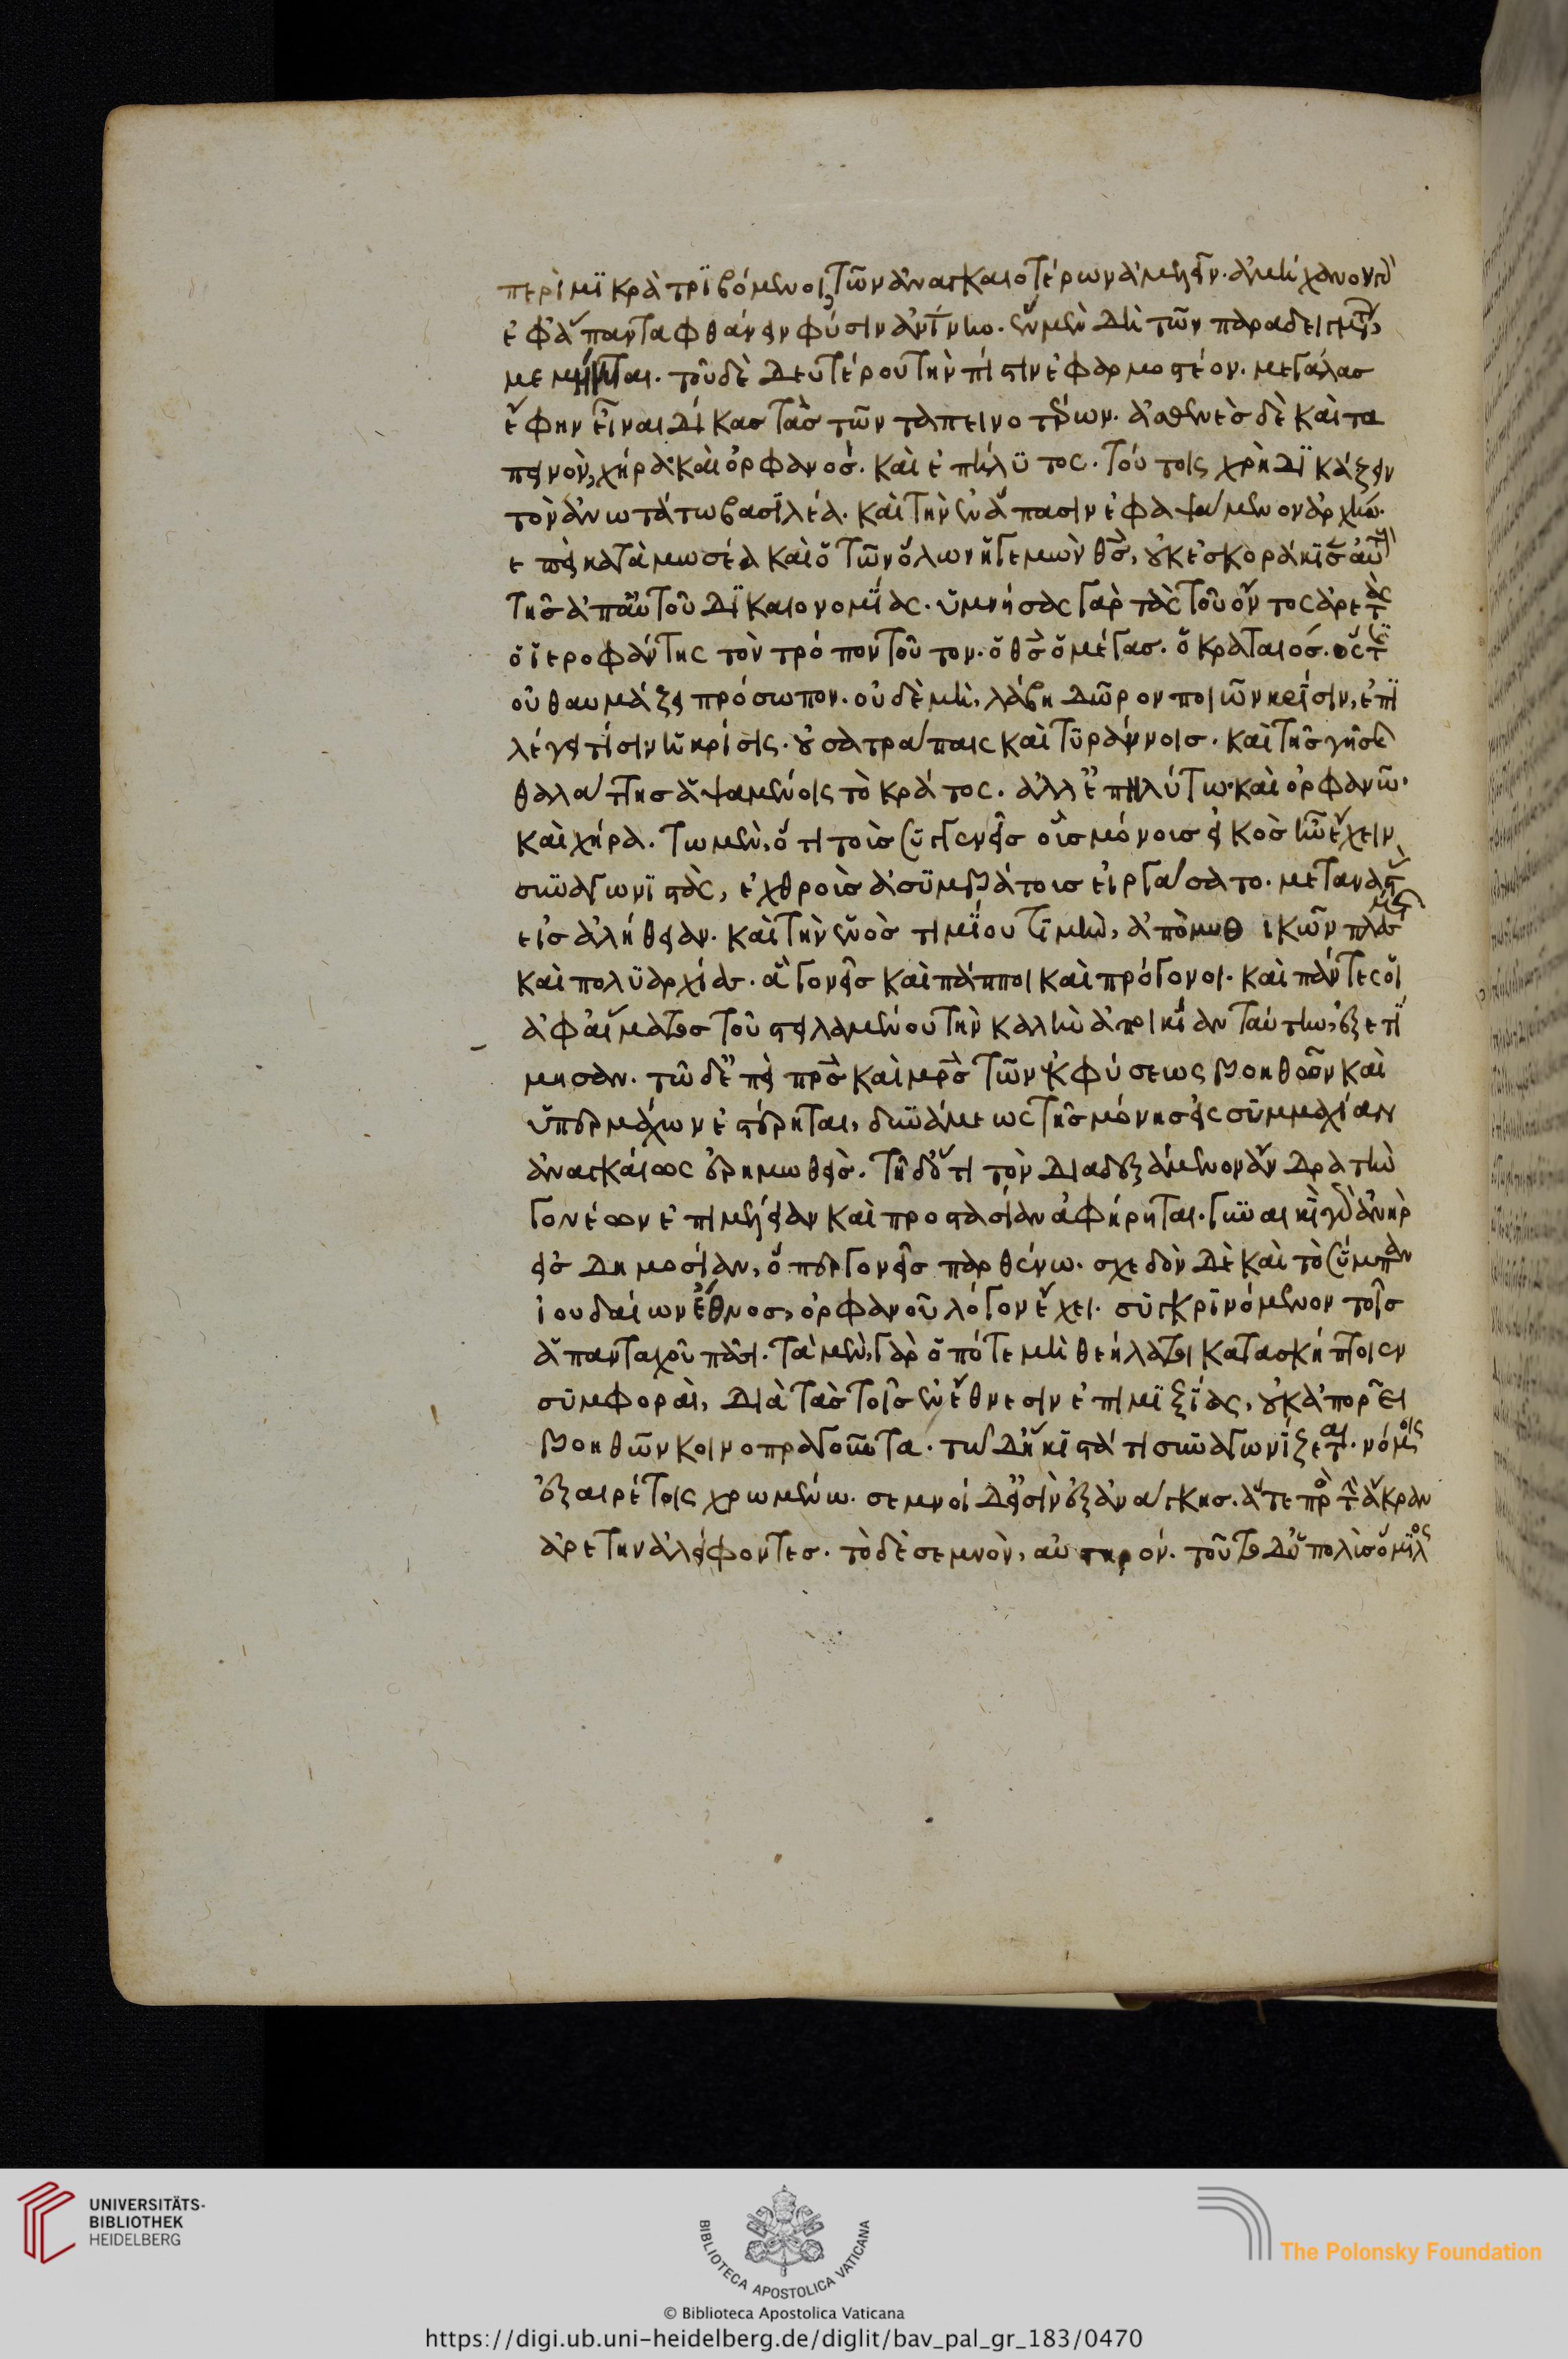 περὶ μϊκρὰ τρϊβόμενοι, τῶν ἀναγκαιοτέρων ἀμελεῖν. ἀμήχανον γὰρ
ἐφ' ἅπαντα φθάνειν φύσιν ἀνίνην. ἓν μὲν δὴ τῶν παραδειγμάτων,
μεμήνυται. τοῦ δὲ δευτέρου τὴν πίστιν ἐφαρμοστέον. μεγάλας
ἔφην εἶναι δίκας τὰς τῶν ταπεινοτέρων. ἀσθενὲς δὲ καὶ τα
πεινὸν, χήρα καὶ ὀρφανός. καὶ ἐπήλϋτος. τούτοις χρὴ δϊκάζειν
τὸν ἀνωτάτω βασιλέα. καὶ τὴν ἐν ἅπασιν ἐφαψάμενον ἀρχήν.
ἐπεὶ κατὰ μωσέα καὶ ὁ τῶν ὅλων ἡγεμὼν θς, οὐκ ἐσκοράκϊσεν αὐτοὺς
τῆς ἀπ' αὐτοῦ δϊκαιονομΐας. ὑμνήσας γὰρ τὰς τοῦ ὄντος ἀρετὰς
ὁ ἱεροφάντης τὸν τρόπον τοῦτον. ὁ θς ὁ μέγας. ὁ κραταιός. ὅστις
οὐ θαυμάζει πρόσωπον. οὐδὲ μὴ, λάβη δῶρον ποιῶν κρίσιν, ἐπϊ
λέγει τίσιν ἡ κρίσις. οὐ σατράπαις καὶ τϋράννοις. καὶ τῆς γῆς καὶ
θαλάττης ἀψαμένοις τὸ κράτος. ἀλλ' ἐπηλύτω. καὶ ὀρφανῶ.
καὶ χήρα. τω μὲν, ὅτι τοὺς συγγενεῖς οὓς μόνους εἰκὸς ἦν ἔχειν,
συναγωνϊστὰς, ἐχθροὺς ἀσϋμβάτους εἰργάσατο. μεταναστὰς
εἰς ἀλήθειαν. καὶ τὴν ἑνὸς τιμΐου τϊμὴν, ἀπὸ μυθικῶν πλασμάτων
καὶ πολϋαρχίας. ἃ γονεῖς καὶ πάπποι καὶ πρόγονοι. καὶ πάντες οἱ
ἀφ' αἵματος τοῦ στειλαμένου τὴν καλὴν ἀποικΐαν ταύτην, ἐξετΐ
μησαν. τῶ δ' ἐπεὶ πρς καὶ μρς τῶν ἐκ φύσεως βοηθῶν καὶ
ὑπερμάχων ἐστέρηται, δυνάμεως τῆς μόνης εἰς συμμαχίαν
ἀναγκάιας ἐρημωθεῖς. τῆ δ' ὅτι τὸν διαδεξάμενον ἄνδρα τὴν
γονέων ἐπιμέλειαν καὶ προστασίαν ἀφήρηται. γϋναικὶ γὰρ ἀνὴρ
εἰς δημοσίαν, ὅπερ γονεῖς παρθένω. σχεδὸν δὲ καὶ τὸ σύμπαν
ἰουδαίων ἔθνος, ὀρφανοῦ λόγον ἔχει. συγκρϊνόμενον τοῖς
ἁπανταχοῦ πᾶσι. τὰ μὲν, γὰρ ὁπότε μὴ θεήλατοι κατασκήπτοιεν
συμφοραὶ, διὰ τὰς τοῖς ἐν ἔθνεσιν ἐπιμϊξΐας, οὐκ ἀπορεῖ
βοηθῶν κοινοπραγοῦντα. τῶ δ' ἥκιστά τι συναγωνίζεται. νόμοις
ἐξαιρέτοις χρωμένω. σεμνοί δ' εἰσὶν ἐξ ἀνάγκης. ἅτε πρὸς τὴν ἄκραν
ἀρετὴν ἀλείφοντες. τὸ δὲ σεμνὸν, αὐστηρόν. τοῦτο δ' ὁ πολὺς ὅμιλος
UNIVERSITÄTS-
BIBLIOTHEK
HEIDELBERG
BIBLIOTECA APOSTOLICA VATICANA
The Polonsky Foundation
© Biblioteca Apostolica Vaticana
https://digi.ub.uni-heidelberg.de/diglit/bav_pal_gr_183/0470